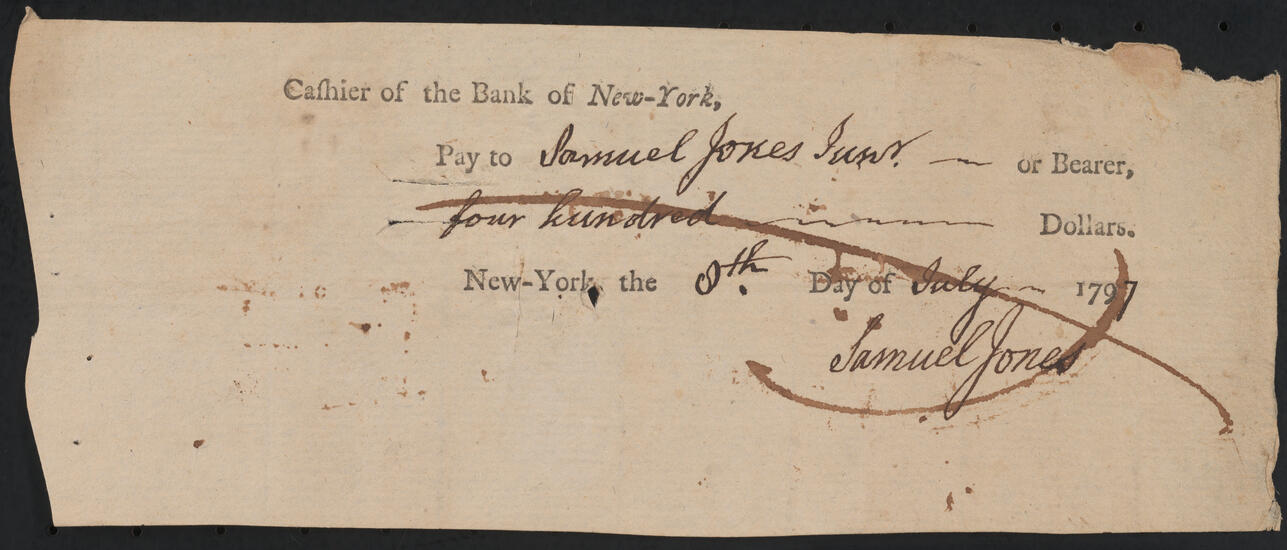 Caſhier of the Bank of New-York,
Pay to Samuel Jones Junr. — or Bearer,
— four hundred — Dollars.
New-York, the 8th. Day of July — 1797
Samuel Jones